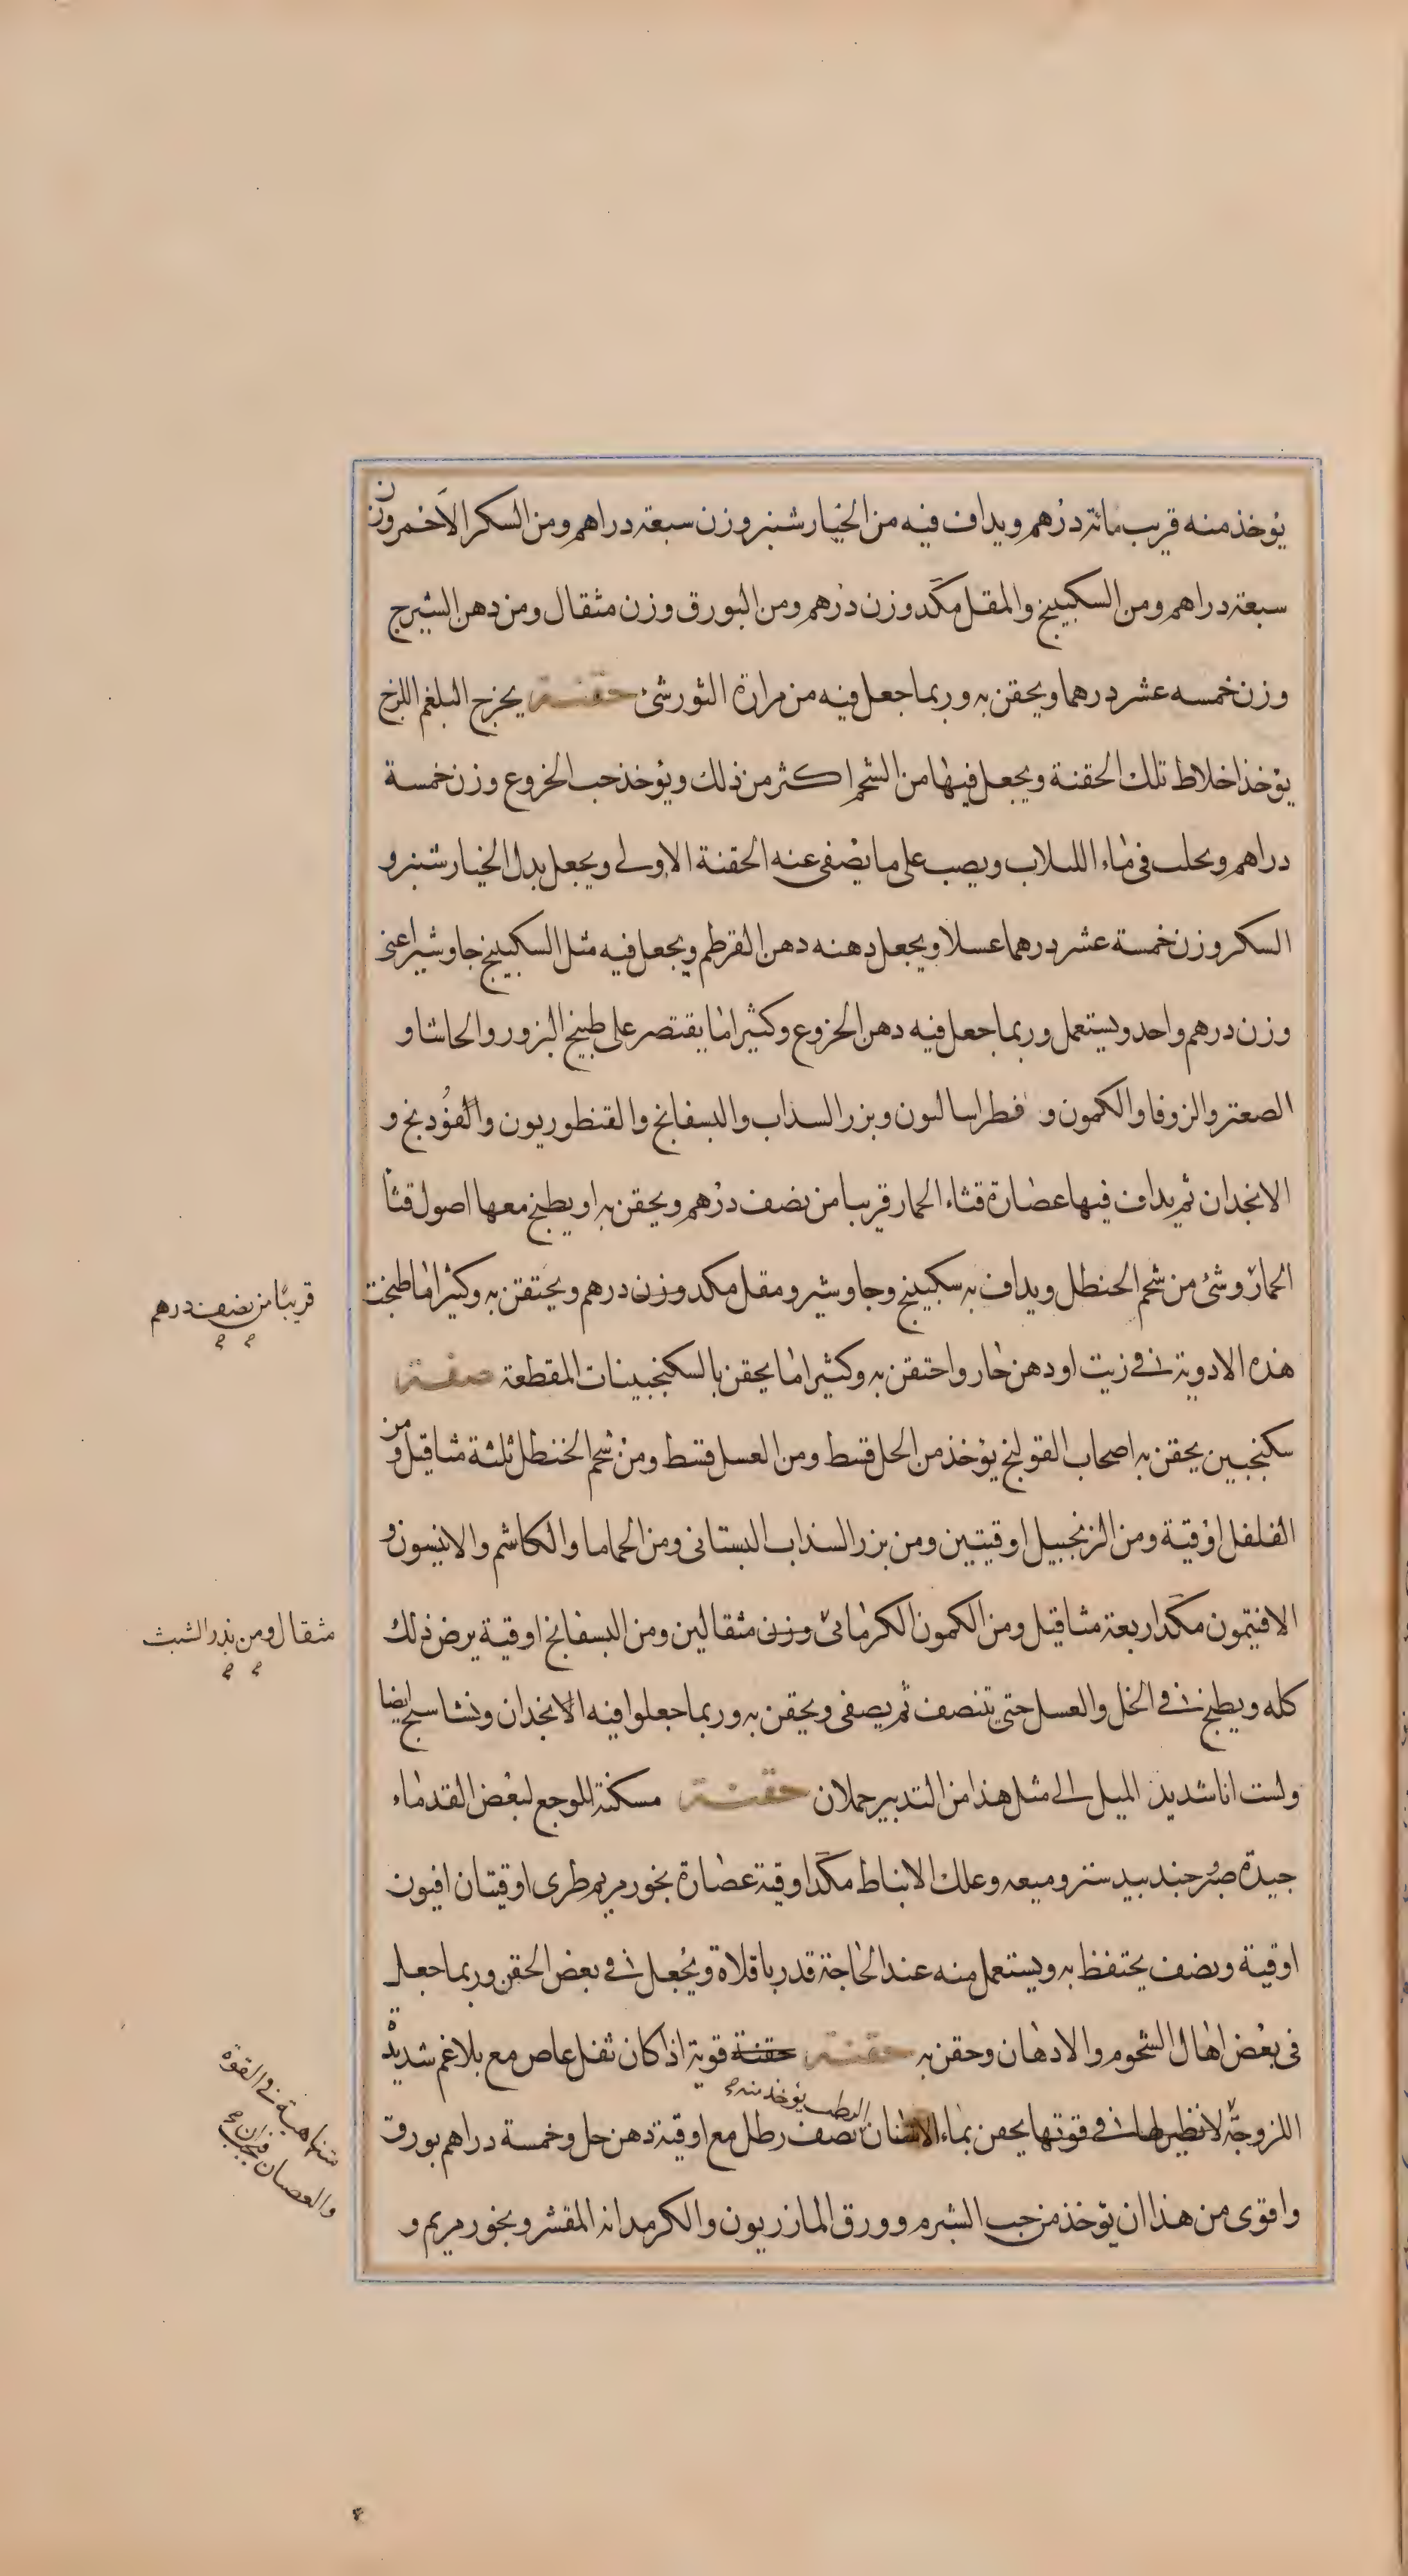 يؤخذ منه قريب مائة درهم ويداف فيه من الخيار شنبر وزن سبعة دراهم ومن السكر الاحمر وزن
سبعة دراهم ومن السكبينج والمقل مكد وزن درهم ومن البورق وزن مثقال ومن دهن الشيرج
وزن خمسه عشر درهما ويحقن به وربما جعل فيه من مرارة الثور شئ حقنة يخرج البلغم اللزج
يؤخذ اخلاط تلك الحقنة ويجعل فيها من الشحم اكثر من ذلك ويؤخذ حب الخروع وزن خمسة
دراهم ويحلب فى ماء اللبلاب ويصب على ما يصفى عنه الحقنة الاولى ويجعل بدل الخيار شنبر و
السكر وزن خمسة عشر درهما عسلا ويجعل دهنه دهن القرطم ويجعل فيه مثل السكبينج جاوشير اعنى
وزن درهم واحد ويستعمل وربما جعل فيه دهن الخروع وكثيرا ما يقتصر على طبيخ البزور والحاشا و
الصعتر والزوفا والكمون و فطراسالىون وبزر السذاب والبسفايج والقنطوريون والفودنج و
الانجدان ثم يداف فيها عصارة قثاء الحمار قريبا من نصف درهم ويحقن به او يطبخ معها اصول قثا
الحمار وشئ من شحم الحنطل ويداف به سكبينج وجاوشير ومقل مكد وزن درهم ويحتقن به وكثيرا ما طبخت
قريبا من نصف درهم
هذه الادوية فى زيت او دهن حار واحتقن به وكثيرا ما يحقن بالسكنجبينات المقطعة صفة
سكنجبين يحقن به اصحاب القولنج يؤخذ من الخل قسط ومن العسل قسط ومن شحم الحنطل ثلثة مثاقيل ومن
الفلفل اوقية ومن الزنجبيل اوقيتين ومن بزر السذاب البستانى ومن الحماما والكاشم والانيسون و
الافتيمون مكد اربعة مثاقيل ومن الكمون الكرمانى وزن مثقالين ومن البسفايج اوقية يرض ذلك
مثقال ومن بذر الشبث
كله ويطبخ فى الخل والعسل حتى يتنصف ثم يصفى ويحقن به وربما جعلوا فيه الانجدان وايضا
ولست انا شديد الميل الى مثل هذا من التدبير حملان حقنة مسكنة للوجع لبعض القدماء
جيدة صبر جندبيدستر وميعه وعلك الانباط مكد اوقية عصارة بخور مريم طرى اوقيتان افيون
اوقية ونصف يحتفظ به ويستعمل منه عند الحاجة قدر باقلاة ويجعل فى بعض الحقن وربما جعل
فى بعض اهال الشحوم والادهان وحقن به حقنة حقنة قوية اذا كان ثفل عاص مع بلاغم شديدة
متناهية فى القوة
والعصيان
اللزوجة لا نظير لها فى قوتها يحقن بماء الاشنان الرطب يؤخذ منه نصف رطل مع اوقية دهن حل وخمسة دراهم بورق
واقوى من هذا ان يؤخذ من حب الشبرم وورق المازريون والكرمدانه المقشر وبخور مريم و